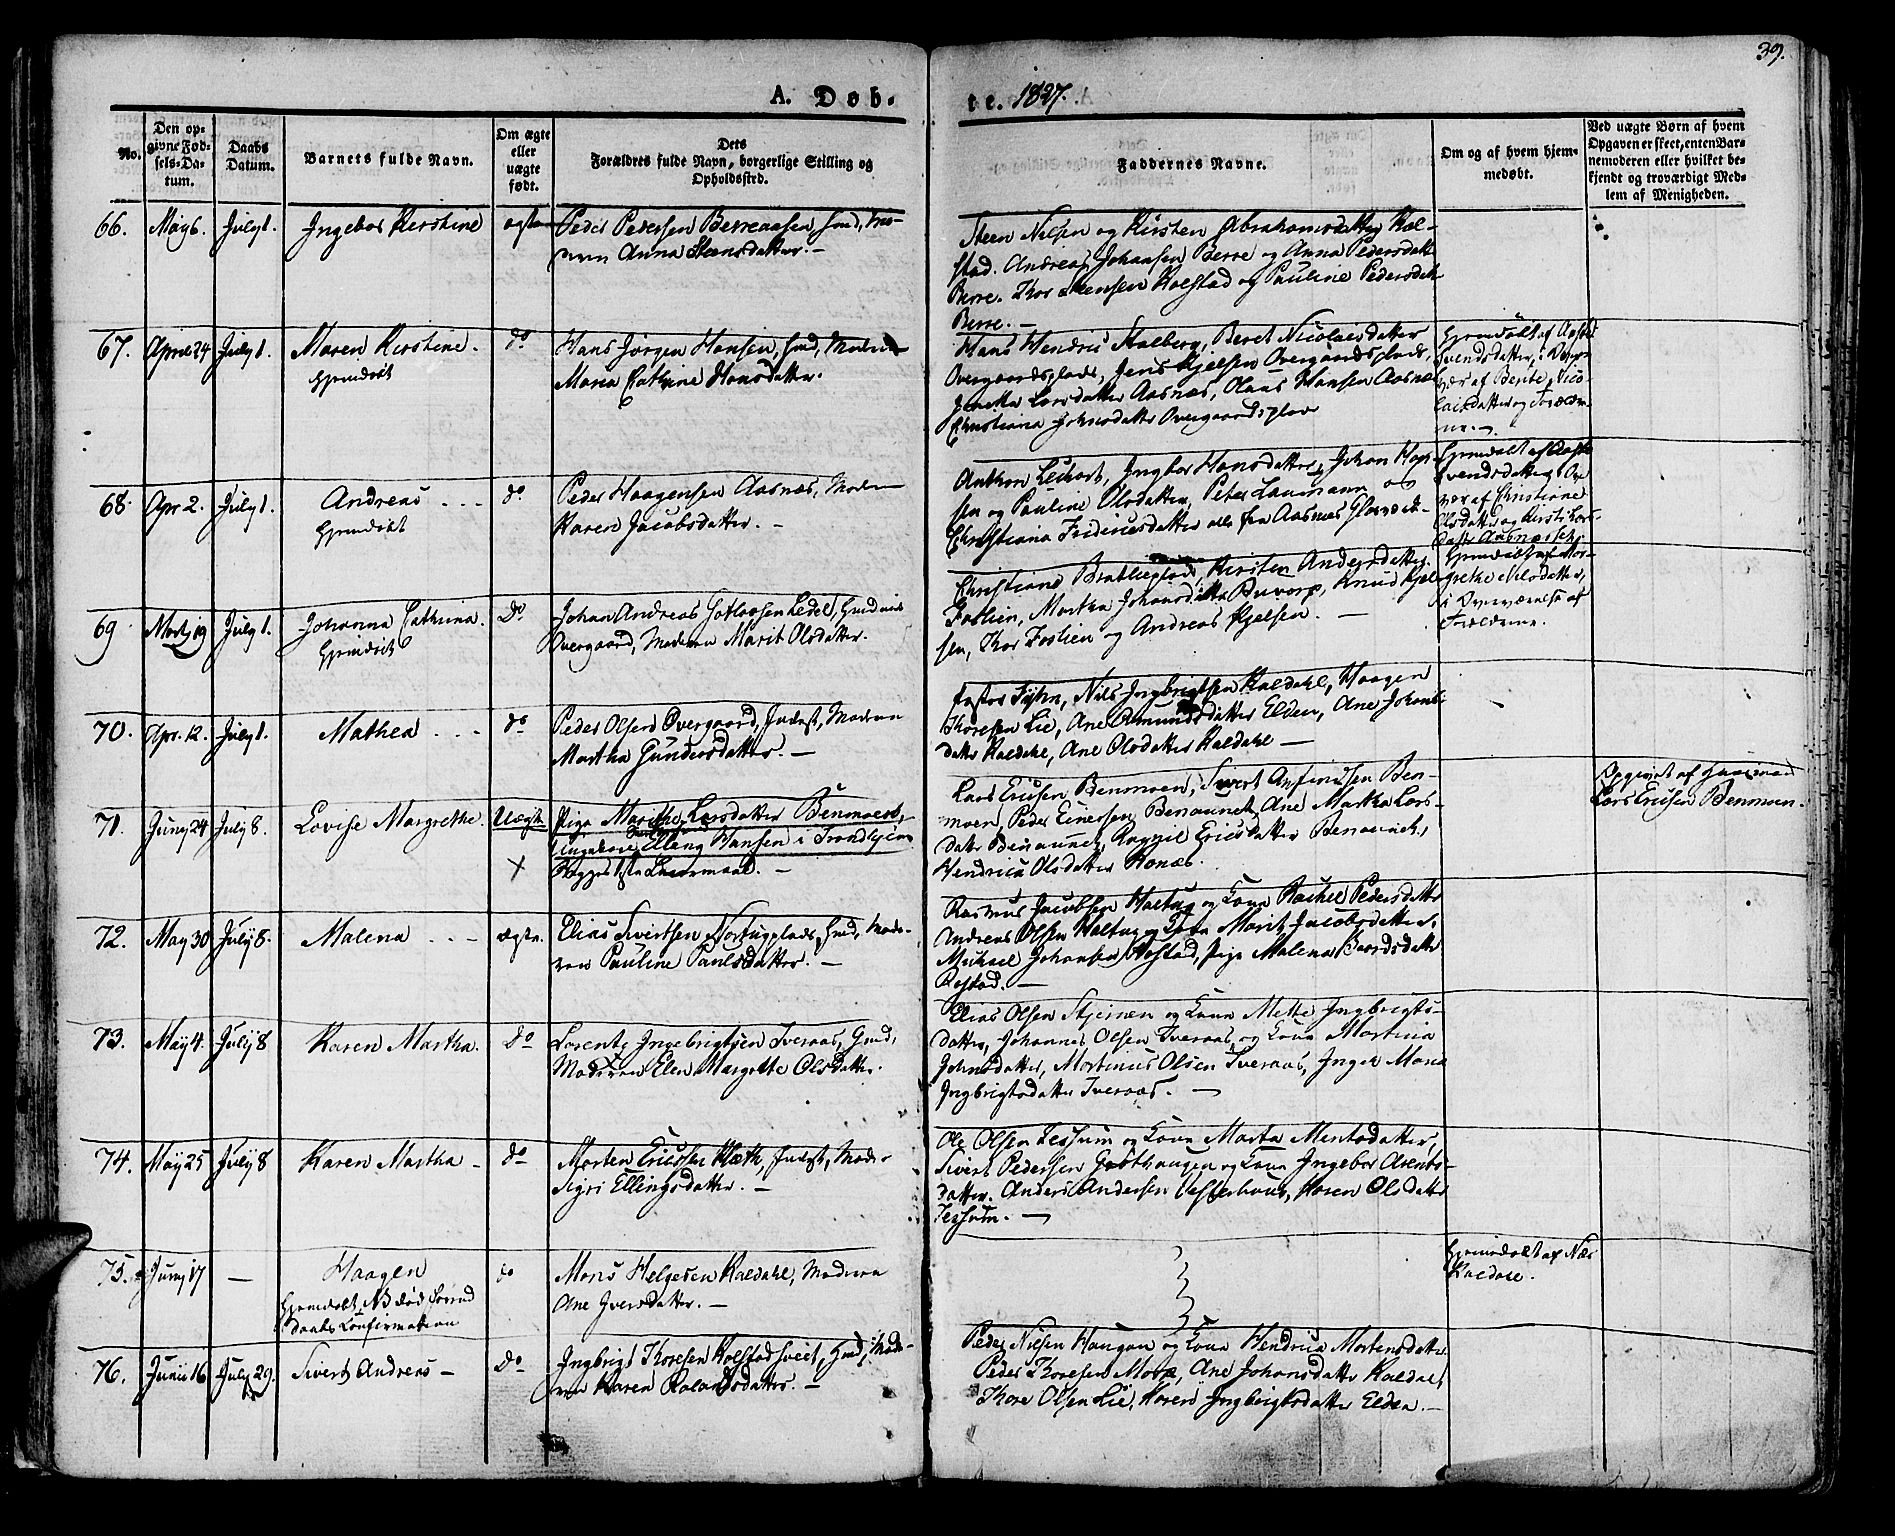 39.
A. Døb-
te. 1827.
No.
Den op-
givne Fød-
sels-Da-
tum.
Daabs
Datum.
Barnets fulde Navn.
Om ægte
eller
uægte
født.
Dets
Forældres fulde Navn, borgerlige Stilling og
Opholdssted.
Faddernes Navne.
Om og af hvem hjem-
medøbt.
Ved uægte Børn af hvem
Opgaven er skeet, enten Bar-
nemoderen eller hvilket be-
kjendt og troværdigt Med-
lem af Menigheden.
66. May 6. July 1. Ingebor Kirstine ægte Peder Pedersen Berreaasen, Hmd, Mo-
deren Anna Steensdatter. —
Steen Nilsen og Kirsten Abrahamsdatter Kol-
stad. Andreas Johansen Berre og Anna Pedersdatt
Berre. Thor Steensen Kolstad og Pauline Pedersdatt
Berre. —
67. April 24 July 1. Maren Kirstine. do Hans Jørgen Hansen, Hmd, Moderen
Hjemdøbt Maria Cathrine Hansdatter.
Hans Hendric Stalberg, Beret Nicolaisdatter
Overgaardsplads, Jens Kjelsen Overgaardsplads,
Larsdatter Aasnæs, Olaus Hansen Aasnæs
Christiana Johnsdatter Overgaardsplads
Hjemdøbt af
Svendsdatter, i Over-
vær af Bente Nico-
laisdatter og Forældre-
ne. —
68. Apr 2. July 1. Andreas . . . do Peder Haagensen Aasnæs, Moderen
Hjemdøbt Karen Jacobsdatter. —
Anthon Ingbor Hansdatter, Johan Han-
sen og Pauline Olsdatter, Peter Laumann og
Christiana Fridericsdatter alle fra Aasnæs
Hjemdøbt af
Svendsdatter, i Over-
vær af Christiane
Olsdatter og Kirsti Lars-
datter
69 July 1. Johanna Cathrina. Do Johan Andreas
Hjemdøbt Overgaard, Moderen Marit Olsdatter.
Kirsten Andersdatter
Foslien, Martha Johansdatter Knud Kjel-
sen, Thor Foslien og Andreas Kjelsen. —
Hjemdøbt af Mar-
grethe Nilsdatter,
i Overværelse af
Forældrene.
70. Apr. 12. July 1. Mathea . . . do Peder Olsen Overgaard, Inderst, Moderen
Martha Gundersdatter. —
Nils Ingbrigtsen Kaldahl, Haagen
Thoresen Lie, Ane Amundsdatter Elden, Ane Johans-
datter Kaldahl, Ane Olsdatter Kaldahl —
71. Juny 24 July 8. Lovise Margrethe. Uægte Pige Marithe Larsdatter Benmoen,
Ungkarl Elling Hansen i Trondhjem
X Begges 1ste Leiermaal. —
Lars Ericsen Benmoen, Sivert Anfindsen Ben-
moen, Peder Einersen Benaunet, Ane Martha Lars-
datter Benaunet, Ragnil Ericsdatter Benaunet,
Hendrica Olsdatter Honæs.
Opgivet af Huusmand
Lars Ericsen Benmoen.
72. May 30 July 8. Malena . . — ægte. Elias Sivertsen Nortugplads, Hmd, Mode-
ren Pauline Paulsdatter. —
Rasmus Jacobsen Haltug og Kona Rachel Pedersdatter
Andreas Olsen Haltug og Kona Marit Jacobsdatter,
Michael Johansen Røstad, Pige Malena Baardsdatter
Røstad. —
73. May 4. July 8 Karen Martha. Do Lorents Ingebrigtsen Tveraas, Hmd,
Moderen Elen Margrethe Olsdatter.
Elias Olsen Stjernen og Kona Mette Ingbrigts-
datter, Johannes Olsen Tveraas, og Kona Martina
Johnsdatter, Martinus Olsen Tveraas, Inger Maria
Ingbrigtsdatter Tveraas. —
74. May 25 July 8 Karen Martha — do Morten Ericssen Kleth, Inderst, Moder
Sigri Ellingsdatter. —
Ole Olsen Tessum og Kona Marta Mentsdatter,
Sivert Pedersen Grøthaugen og Kona Ingebor Arents-
datter. Anders Andersen Vesterhuus, Karen Olsdatter
Tessum. —
75. Juny 17 — Haagen do Mons Helgesen Kaldahl, Moderen
Hjemdøbt, NB død forend Ane Iversdatter. —
Daabs Confirmation
Hjemdøbt af
Kaldahl.
76. Junii 16 July 29. Sivert Andreas — Do Ingbrigt Thoresen Kolstadsveet, Hmd, Mode-
ren Karen Rolandsdatter. —
Peder Nilsen Haugan og Kona Hendrica Mortensdatter
Peder Thoresen Ane Johansdatter Kaldal,
Thore Olsen Lie, Karen Ingbrigtsdatter Elden. —